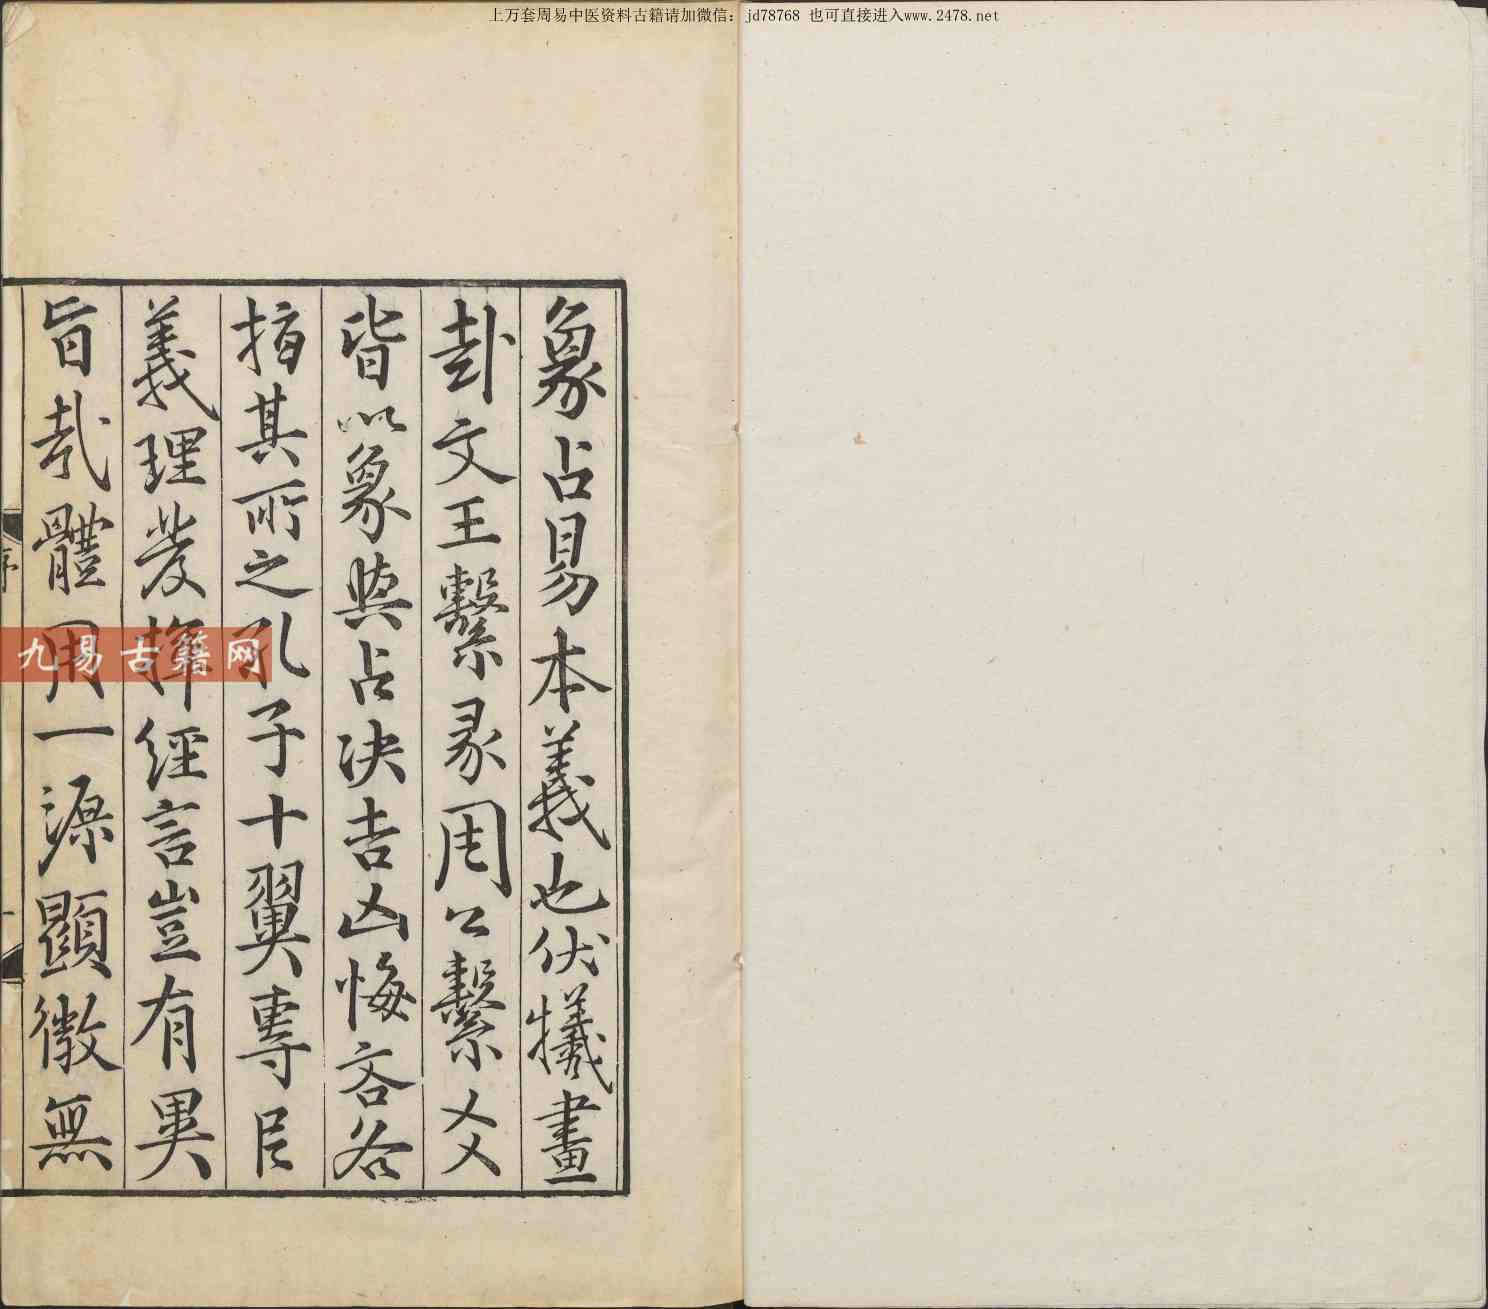 上万套周易中医资料古籍请加微信：jd78768 也可直接进入www.2478.net
象占易本義也伏犧畫
卦文王繫彖周公繫爻
皆以象與占决吉凶悔吝各
指其所之孔子十翼專㠯
義理發揮經言豈有異
旨哉體用一源顯微無
序
一
九易古籍网